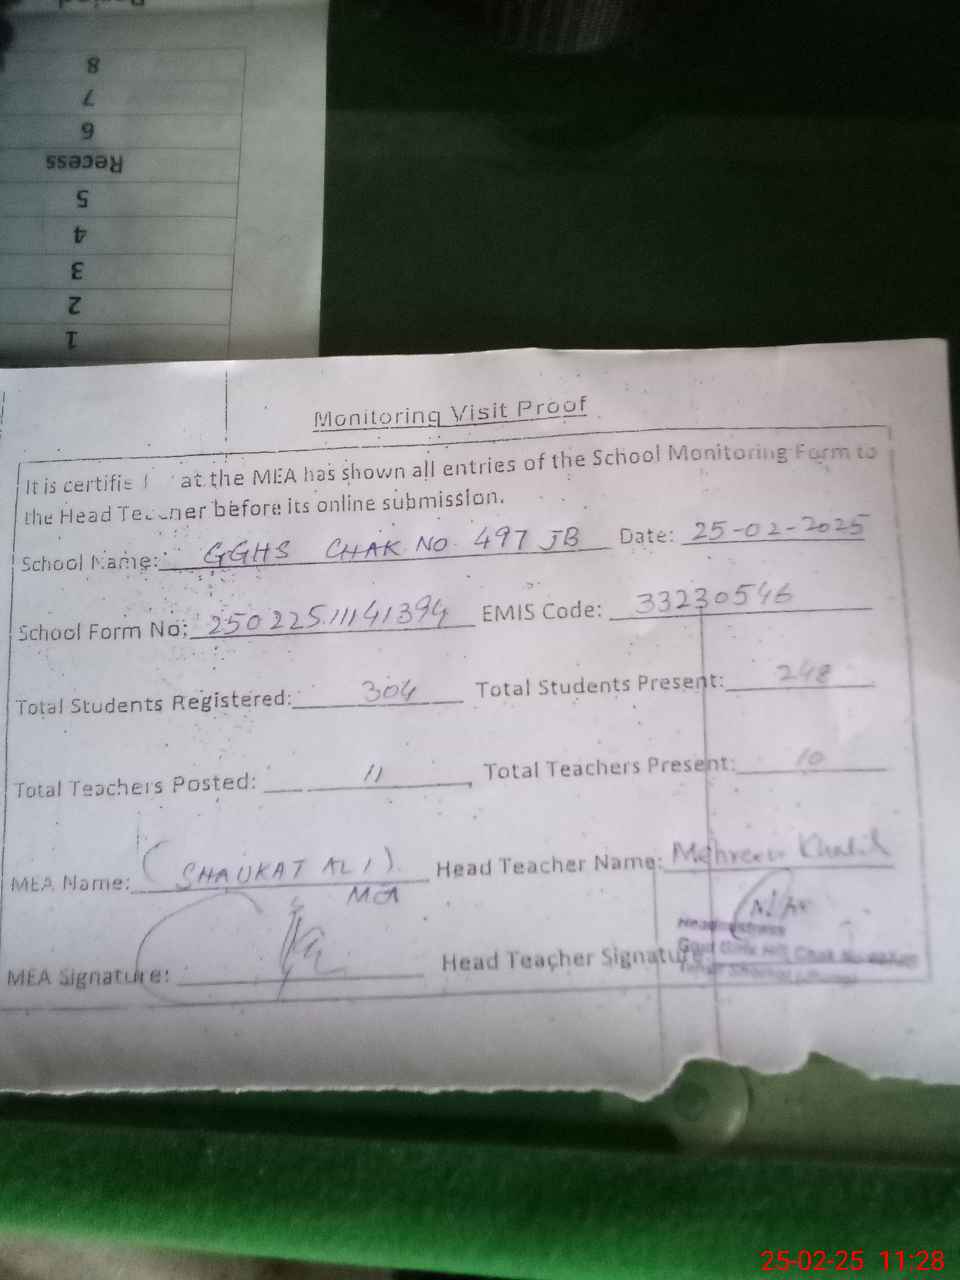 8
7
6
Recess
5
4
3
2
1
Monitoring Visit Proof
It is certifie at the MEA has shown all entries of the School Monitoring Form to
the Head Teacher before its online submission.
School Name: GGHS CHAK NO. 497 JB Date: 25-02-2025
School Form No: 25022511141394 EMIS Code: 33230546
Total Students Registered: 304 Total Students Present: 248
Total Teachers Posted: 11 Total Teachers Present: 10
MEA Name: (SHAUKAT ALI) Head Teacher Name: Mehreen Khalid
MEA
Headmistress
MEA Signature: Head Teacher Signature:
25-02-25 11:28